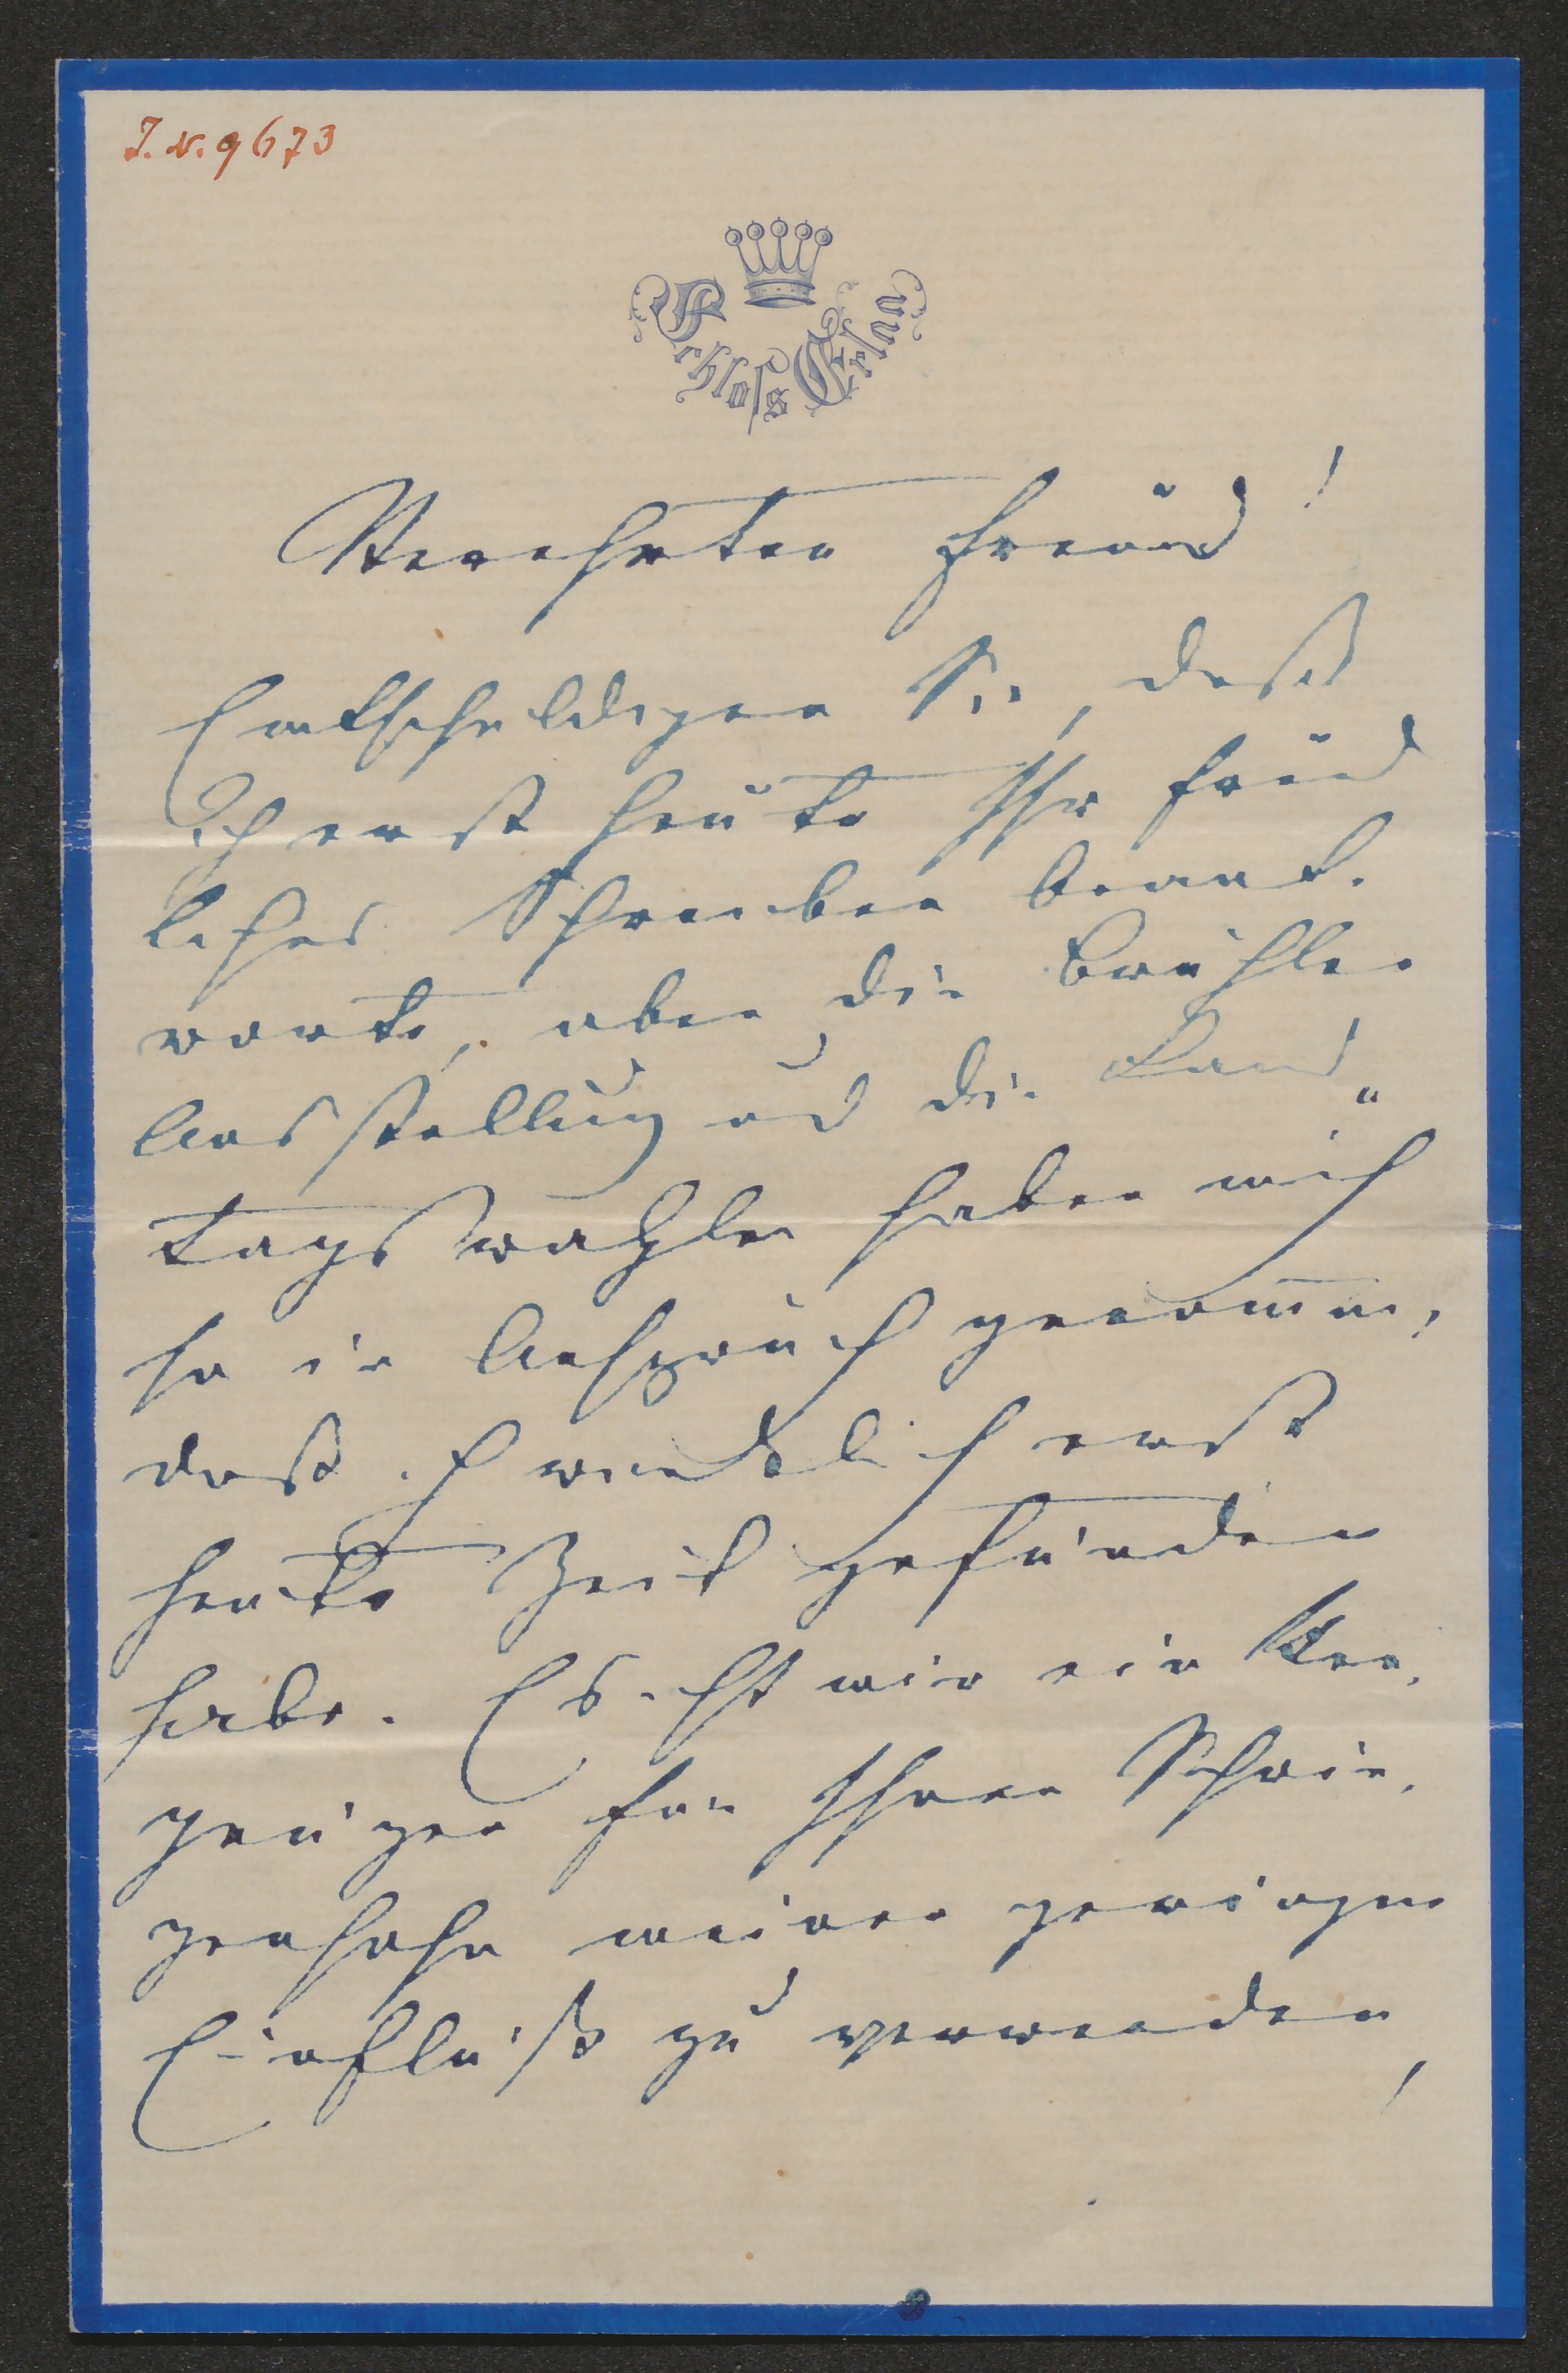 J. N. 9673
Schloss Erlau
Verehrter Freund!
Entschuldigen Sie, dass
ich erst heute Ihr freund
liches Schreiben beant-
worte, aber die
Ausstellung und die Land„
tagswahlen haben mich
so in Anspruch genom̄en,
dass ich wirklich erst
heute Zeit gefunden
habe. Es ist mir ein Ver-
gnügen für Ihren Schwie-
gersohn meinen geringen
Einfluss zu verwenden,